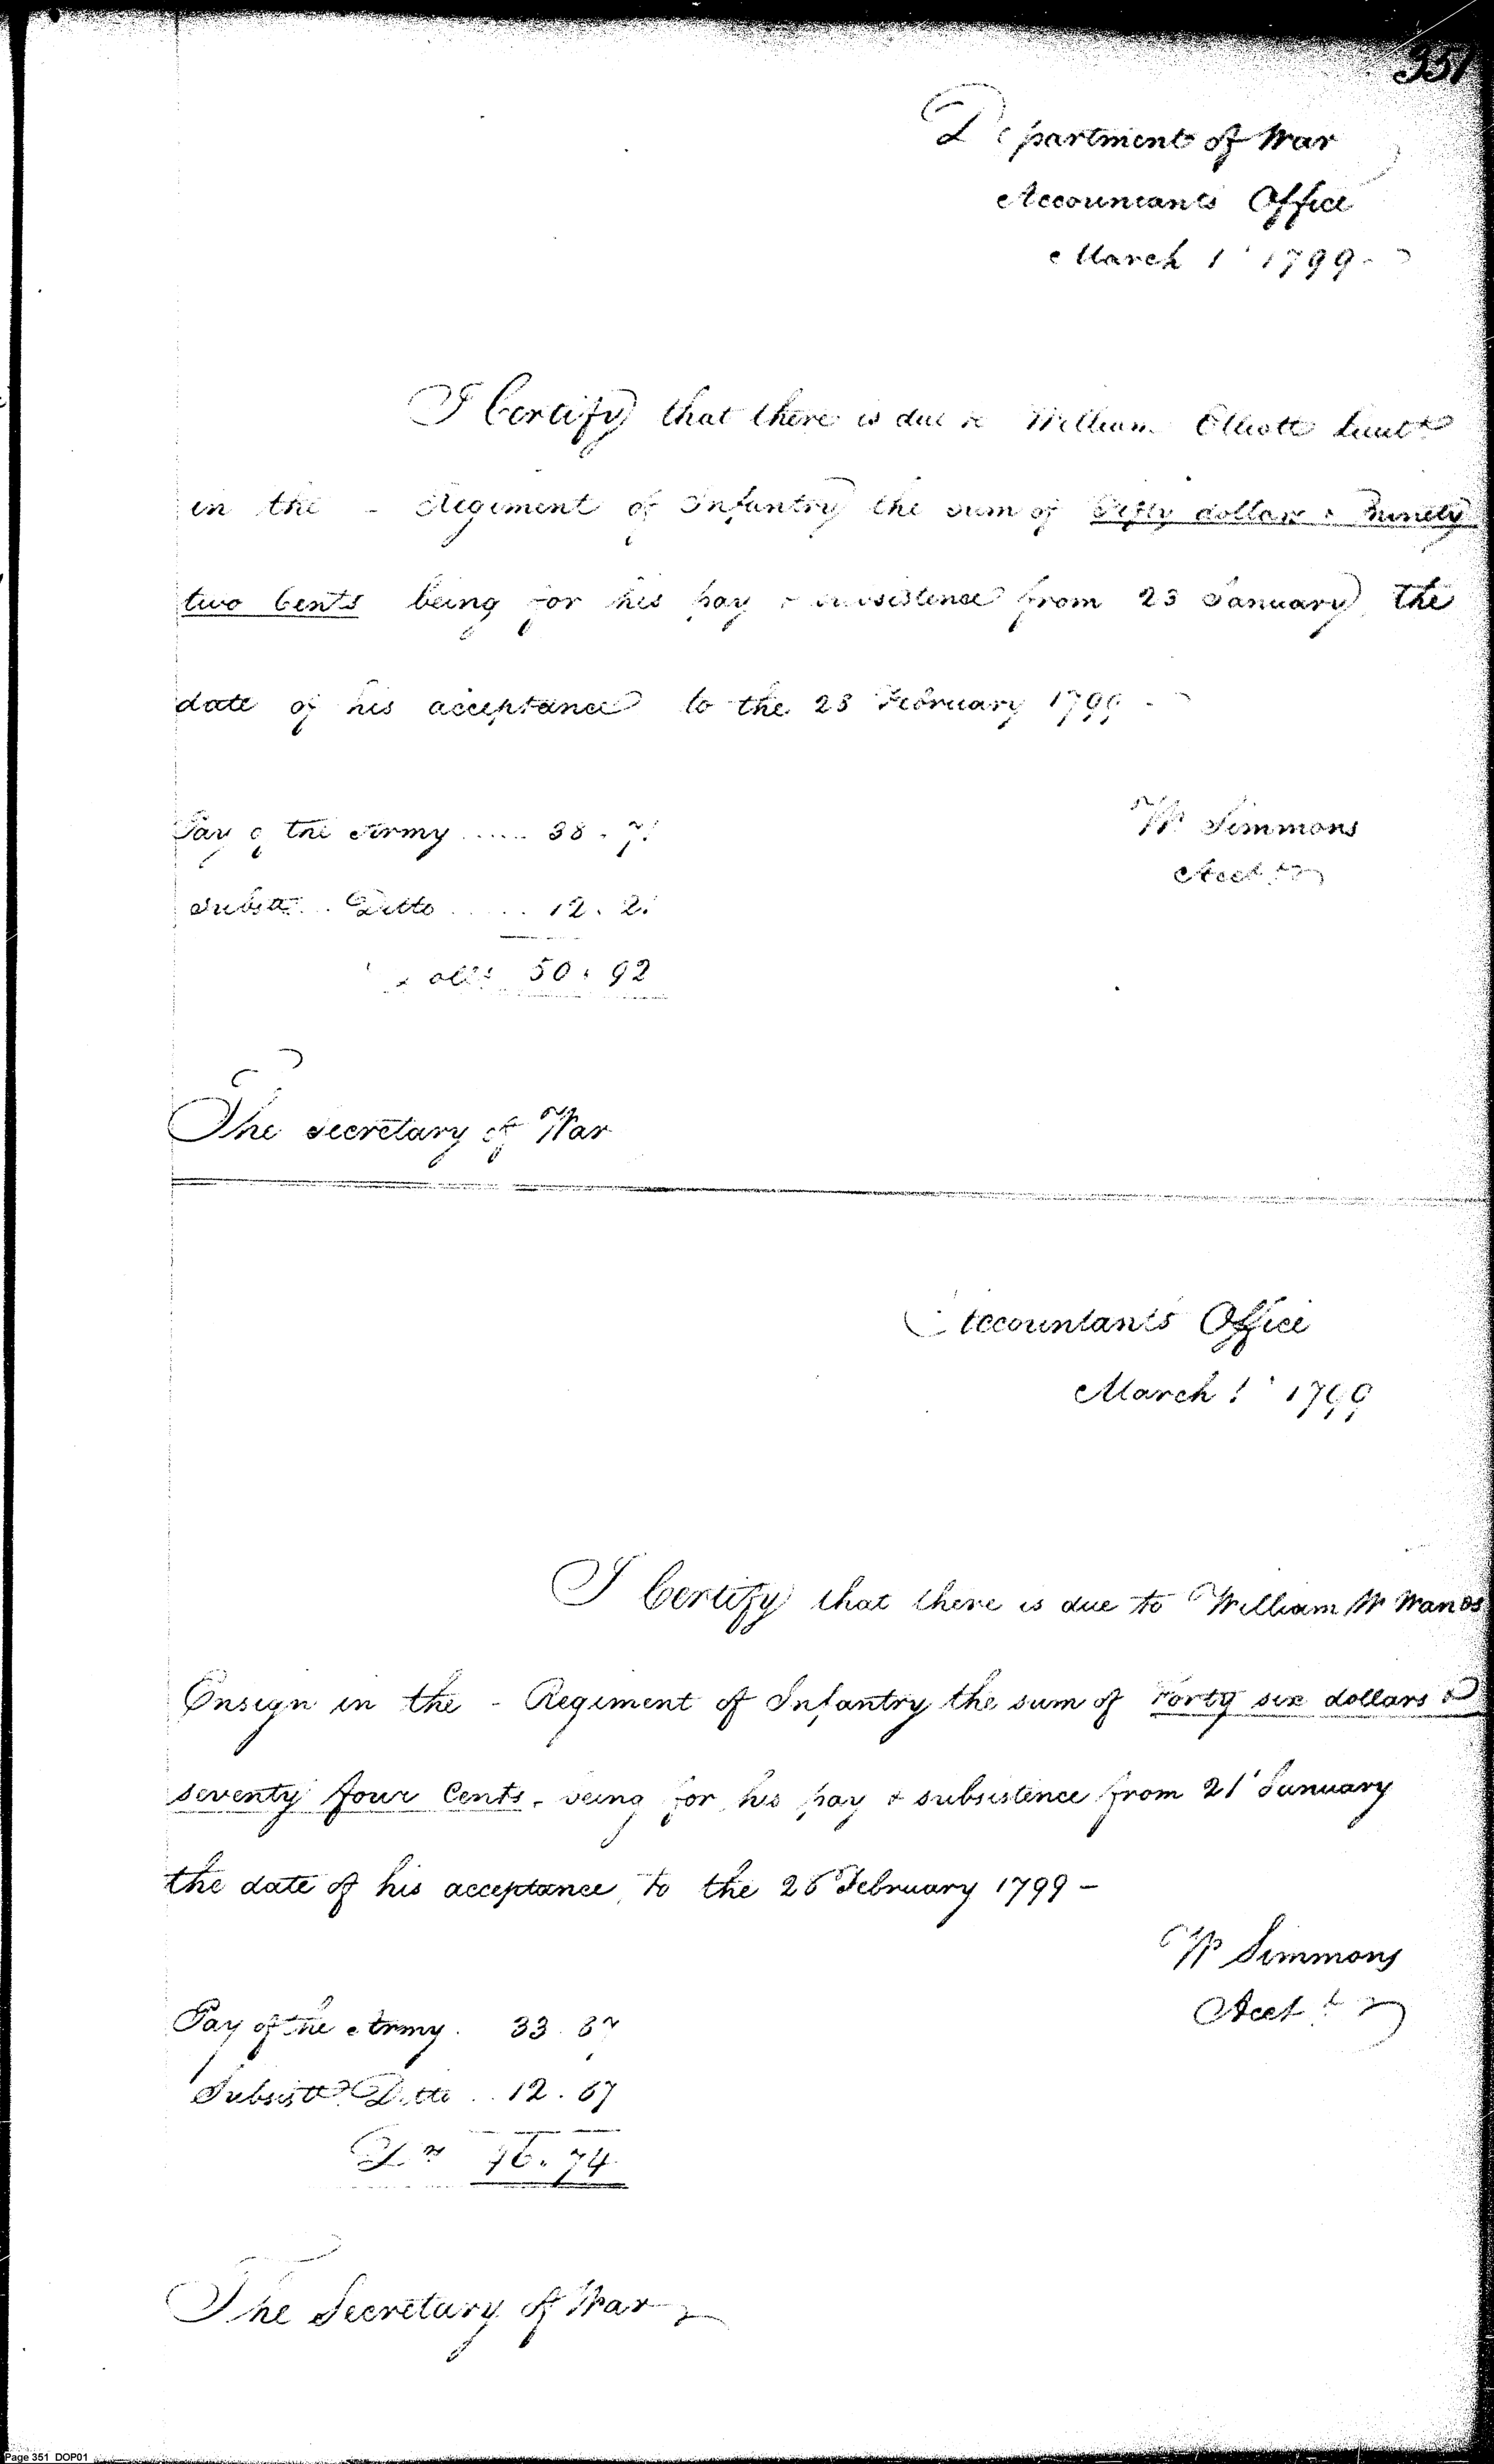 351
Department of War
Accountants Office
March 1st 1799
I Certify that there is due to William Elliott Lieut
in the - Regiment of Infantry the sum of Fifty dollars & ninety
two Cents being for his pay & subsistence from 23 January the
date of his acceptance to the 28 February 1799 -
Pay of the Army ...... 38.71
Subsce .. Ditto ..... 12.21
Dolls 50.92
W Simmons
Acct
The Secretary of War
Accountants Office
March 1st 1799
I Certify that there is due to William W Wands
Ensign in the - Regiment of Infantry the sum of Forty six dollars &
seventy four Cents, being for his pay & subsistence from 21 January
the date of his acceptance, to the 28 February 1799 -
W Simmons
Acct
Pay of the Army . 33.87
Subsist Ditto .. 12.87
46.74
The Secretary of War
Page 351 DOP01